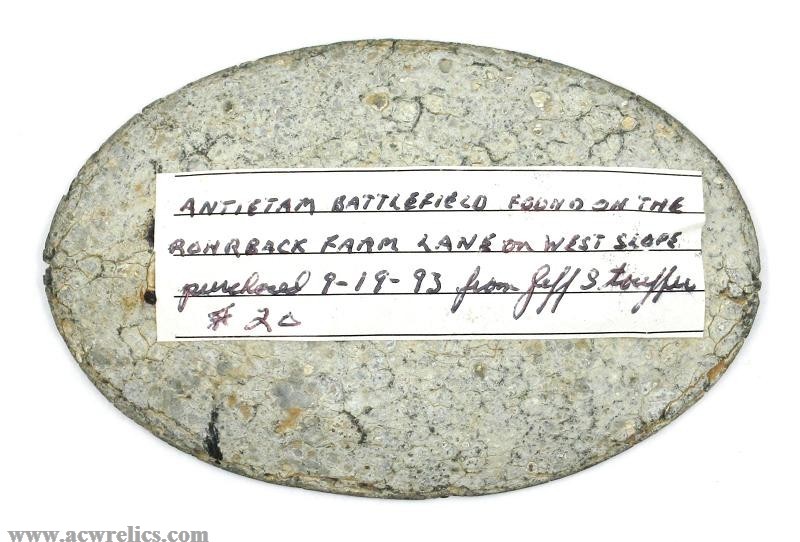 ANTIETAM BATTLEFIELD FOUND ON THE
ROHRBACK FARM LANE ON WEST SLOPE
purchased 9-19-93 from Jeff Stouffer
# 20
www.acwrelics.com